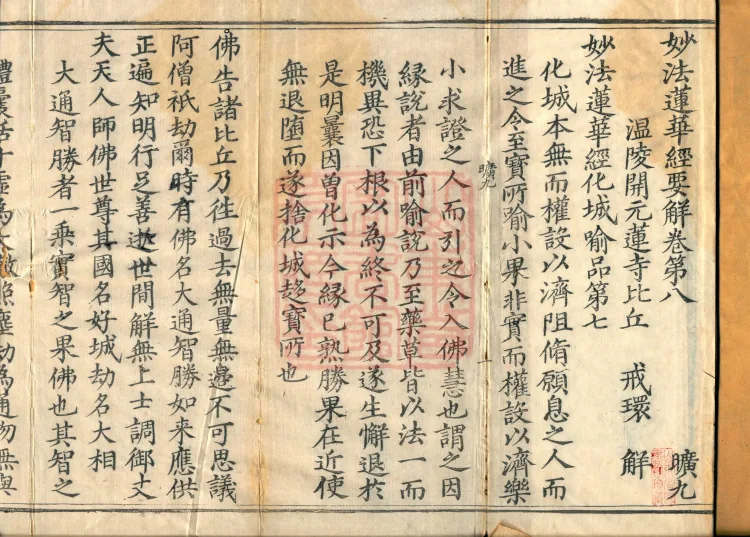 妙法蓮華經要解卷第八 曠九
溫陵開元蓮寺比丘 戒環 解
妙法蓮華經化城喻品第七
化城本無而權設以濟阻脩願息之人而
進之令至寶所喻小果非實而權設以濟樂
曠九
小求證之人而引之令入佛慧也謂之因
緣說者由前喻說乃至藥草皆以法一而
機異恐下根以為終不可及遂生懈退於
是明曩因曾化示今緣已熟勝果在近使
無退墮而遂捨化城趍寶所也
佛告諸比丘乃徃過去無量無邊不可思議
阿僧祇劫爾時有佛名大通智勝如来應供
正遍知明行足善逝世間解無上士調御丈
夫天人師佛世尊其國名好城劫名大相
大通智勝者一乗實智之果佛也其智之
體囊括十虛為大徹照塵劫為通物無與